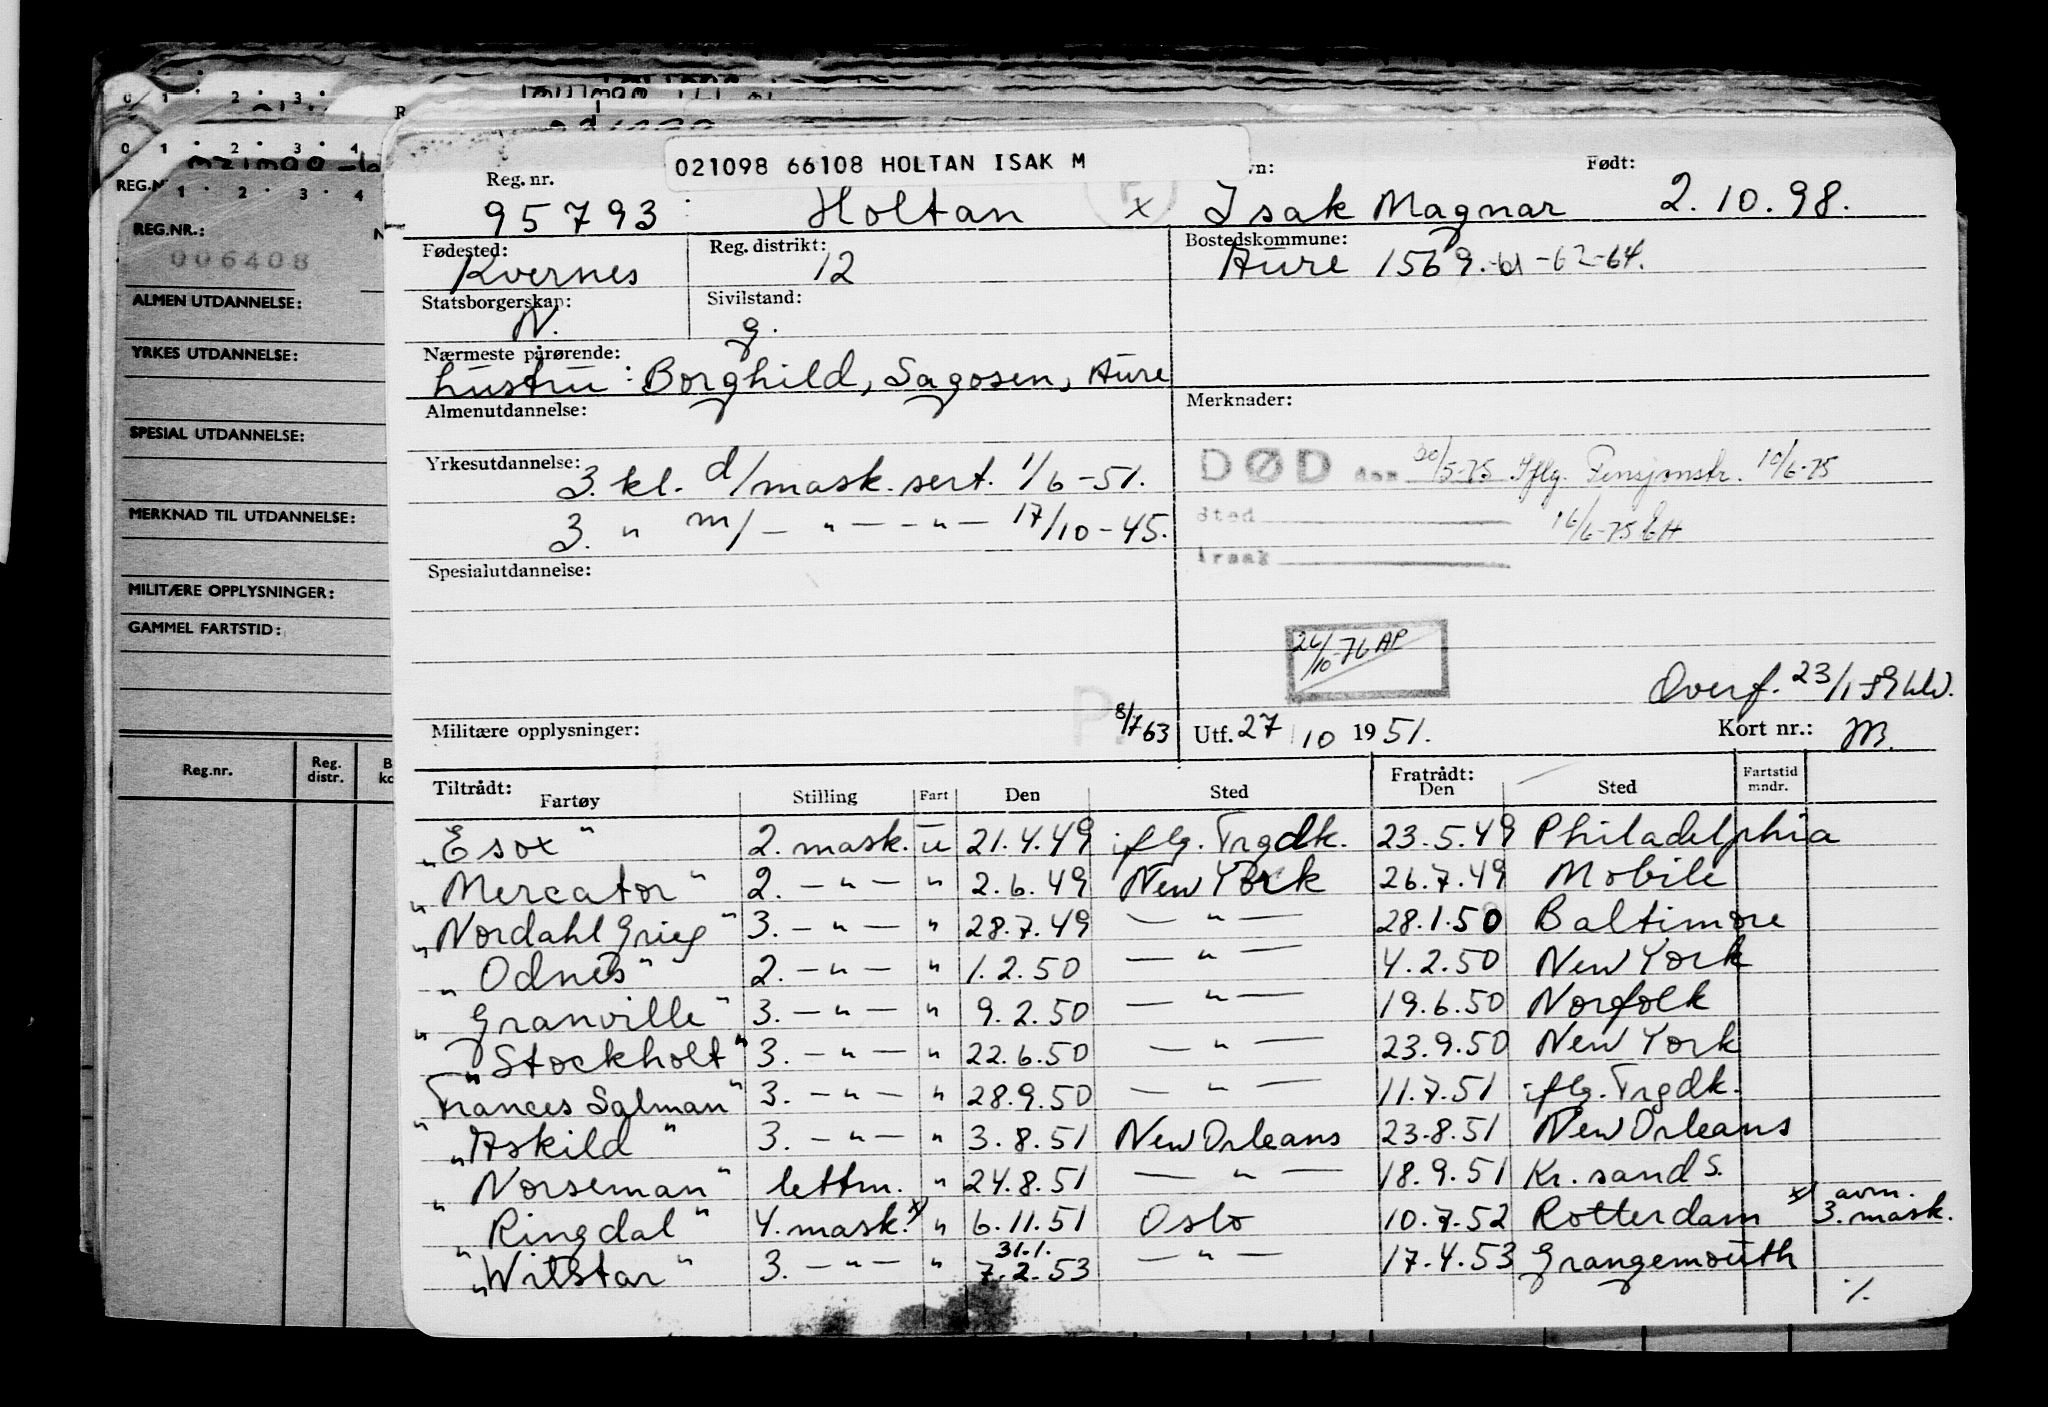 021098 66108 HOLTAN ISAK M
Reg. nr. Født:
95793 Holtan x Isak Magnar 2.10.98.
Fødested: Reg. distrikt: Bostedskommune:
Kvernes 12 Aure 1569.-61-62-64.
Statsborgerskap: Sivilstand:
N. g.
Nærmeste pårørende:
hustru: Borghild, Sagosen, Aure
Almenutdannelse: Merknader:
Yrkesutdannelse:
3. kl. d/mask. sert. 1/6-51.
3. " m/ — " — - " — 17/10-45.
DØD den 30/5-75 Iflg. Pensjonstr. 10/6-75
Sted 16/6-75 EH
årsak
Spesialutdannelse:
26/10-76 AP
Overf. 23/1-59
Militære opplysninger: 8/7 63 Utf. 27/10 1951. Kort nr.: M.
Tiltrådt: Fratrådt: Fartstid
Fartøy Stilling Fart Den Sted Den Sted mndr.
"Esox" 2. mask. u 21.4.49 iflg. Trgdk. 23.5.49 Philadelphia
"Mercator" 2. — " — " 2.6.49 New York 26.7.49 Mobile
"Nordahl Grieg" 3. — " — " 28.7.49 — " — 28.1.50 Baltimore
"Odnes" 2. — " — " 1.2.50 — " — 4.2.50 New York
"Granville" 3. — " — " 9.2.50 — " — 19.6.50 Norfolk
"Stockholt" 3. — " — " 22.6.50 — " — 23.9.50 New York
"Frances Salman" 3. — " — " 28.9.50 — " — 11.7.51 iflg. Trgdk.
"Askild" 3. — " — " 3.8.51 New Orleans 23.8.51 New Orleans
"Norseman" lettm. " 24.8.51 — " — 18.9.51 Kr. sand S.
"Ringdal" 4. mask. x) " 6.11.51 Oslo 10.7.52 Rotterdam x) avm. 3. mask.
31.1.
"Wilstar" 3. — " — " 7.2.53 — " — 17.4.53 Grangemouth
./.
0 1 2 3
0 1 2 3 4
REG.N
1 2 3 4
REG.NR.: N
006408
ALMEN UTDANNELSE:
YRKES UTDANNELSE:
SPESIAL UTDANNELSE:
MERKNAD TIL UTDANNELSE:
MILITÆRE OPPLYSNINGER:
GAMMEL FARTSTID:
Reg.nr. Reg. distr.